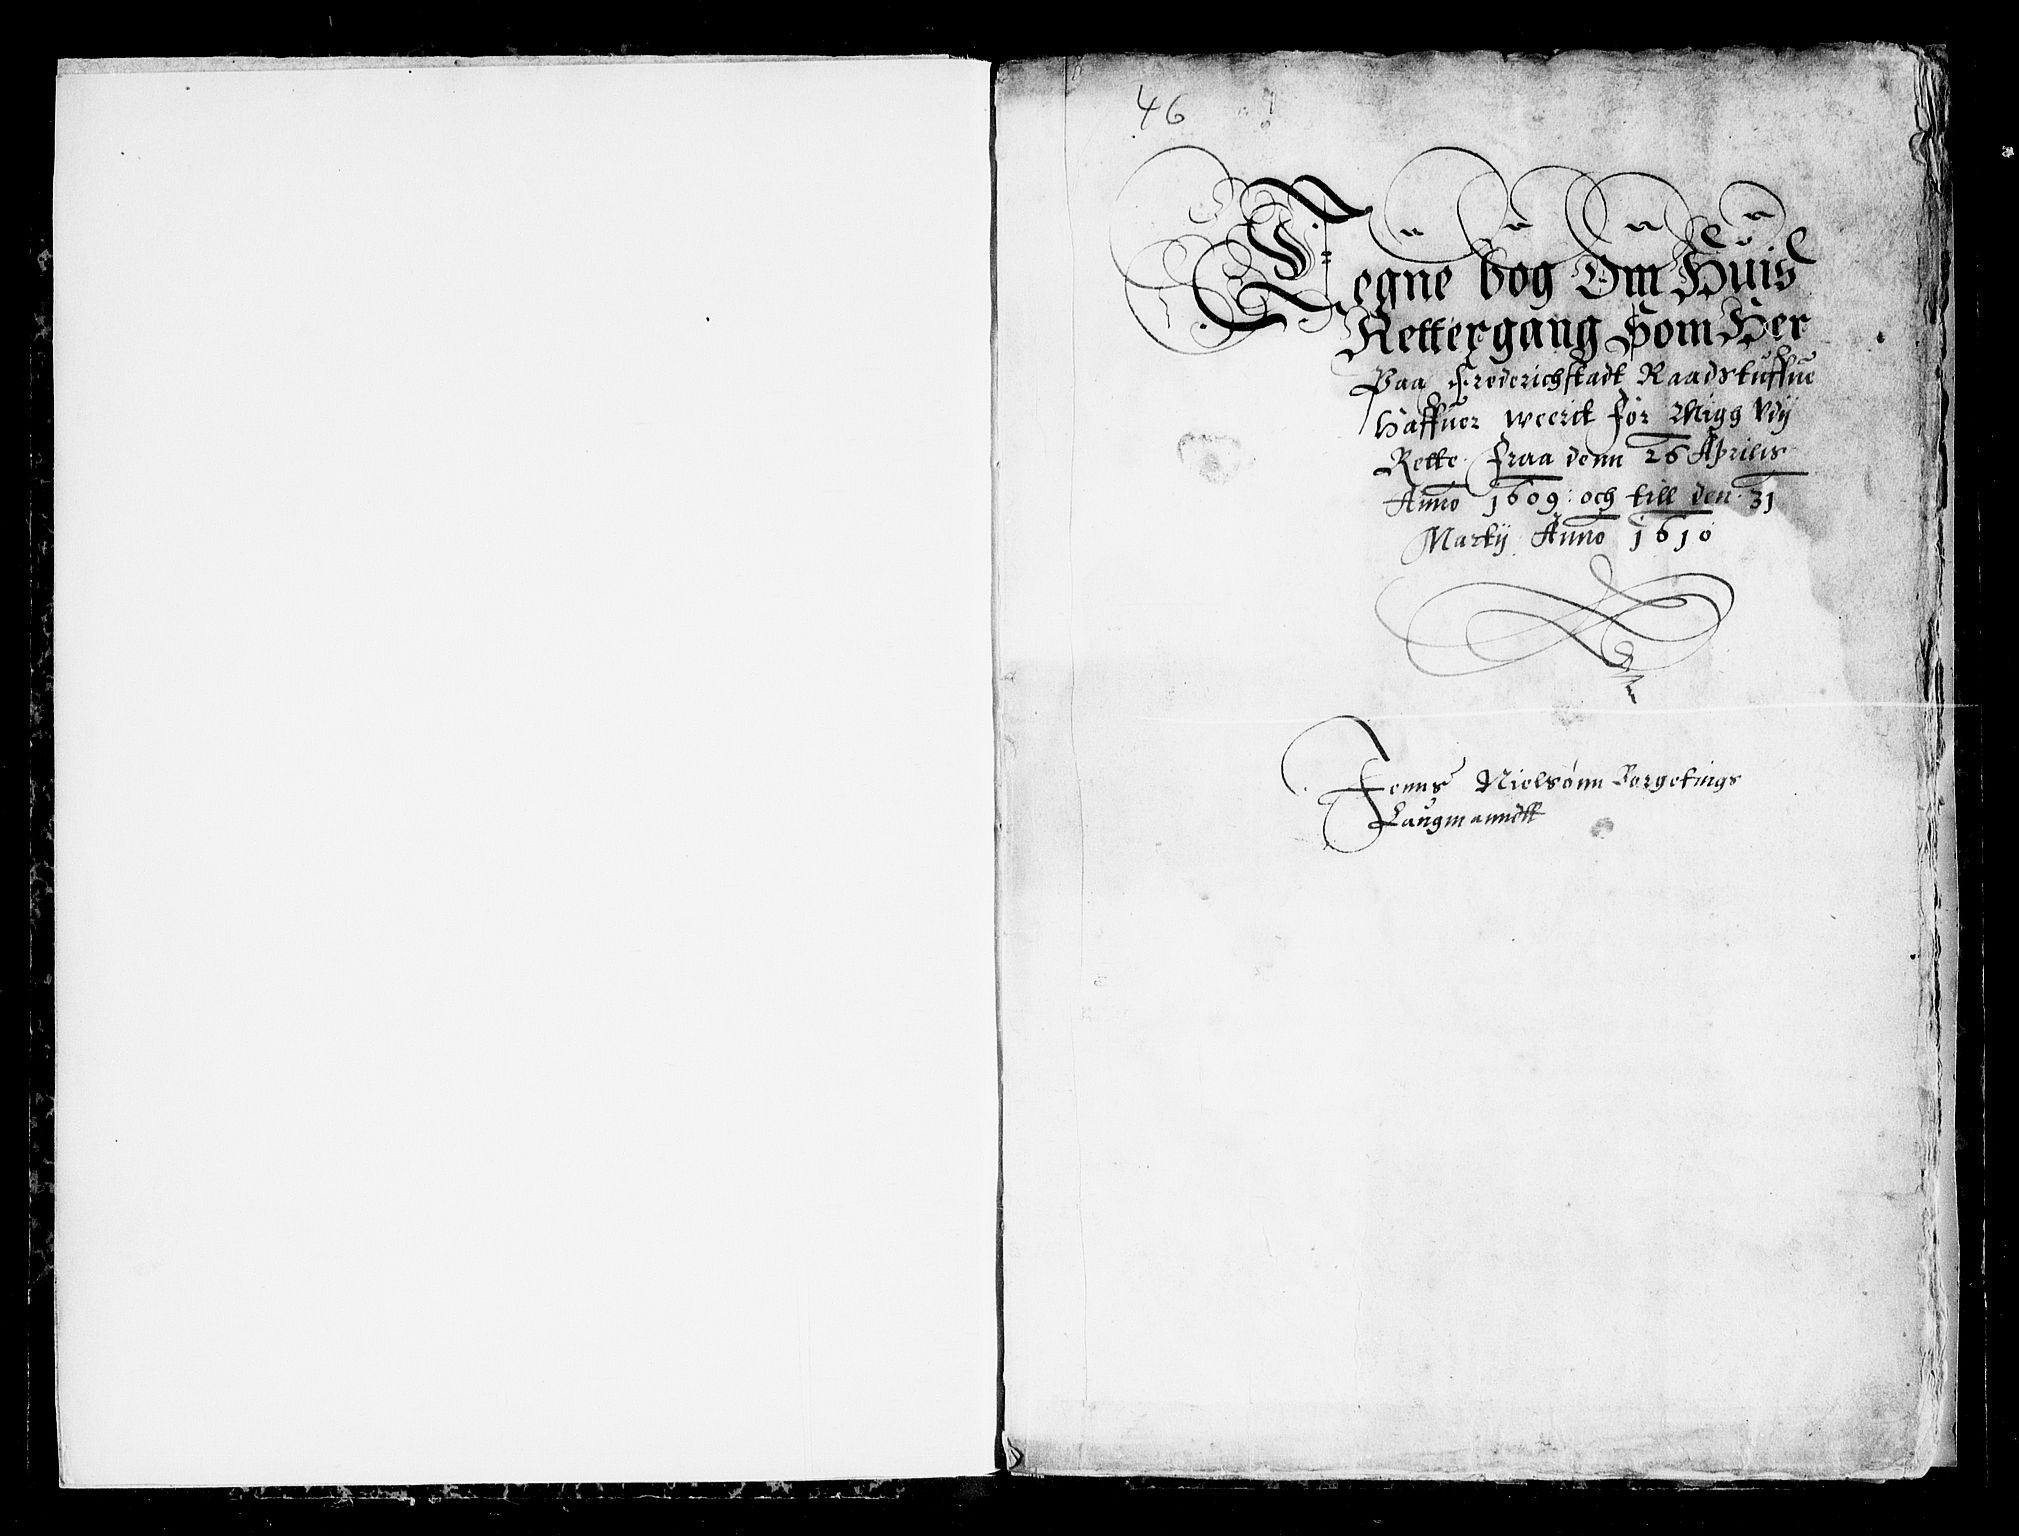 46
Tegne bog Om Huis
Rettergang Som Her
Paa Frederichstadt Raadstuffue
Haffuer weerit for Migg Vdij
Rette fraa denn 26 Aprilis
Anno 1609: och till den 31
Martij Anno 1610
Jenns Nielsønn Borgetings
Laugmandtt